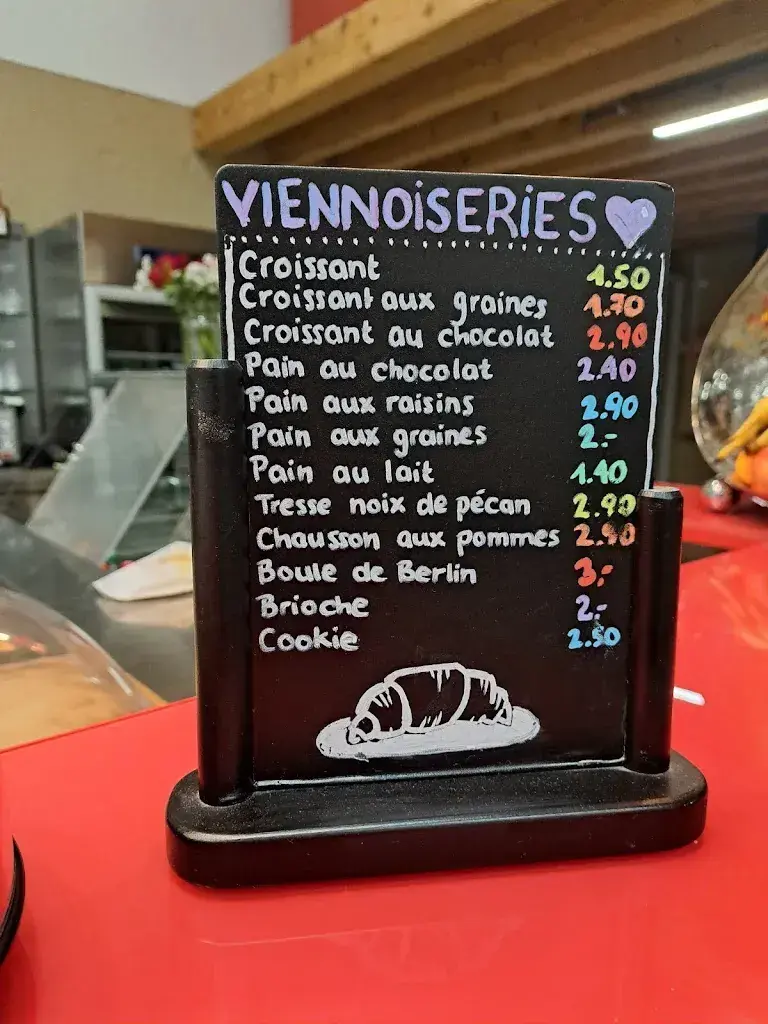 VIENNOiSERiES
Croissant 1.50
Croissant aux graines 1.70
Croissant au chocolat 2.90
Pain au chocolat 2.40
Pain aux raisins 2.90
Pain aux graines 2.-
Pain au lait 1.40
Tresse noix de pécan 2.90
Chausson aux pommes 2.90
Boule de Berlin 3.-
Brioche 2.-
Cookie 2.50